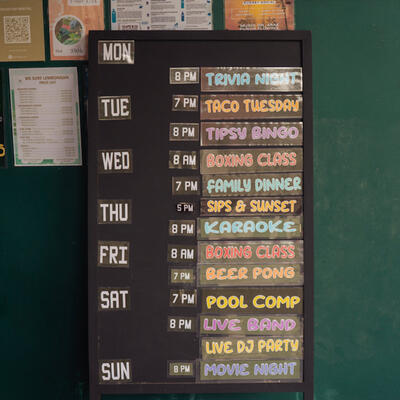 MON
8 PM TRIVIA NIGHT
TUE 7 PM TACO TUESDAY
8 PM TIPSY BINGO
WED 8 AM BOXING CLASS
7 PM FAMILY DINNER
THU 5 PM SIPS & SUNSET
8 PM KARAOKE
FRI 8 AM BOXING CLASS
7 PM BEER PONG
SAT 7 PM POOL COMP
8 PM LIVE BAND
LIVE DJ PARTY
SUN 8 PM MOVIE NIGHT